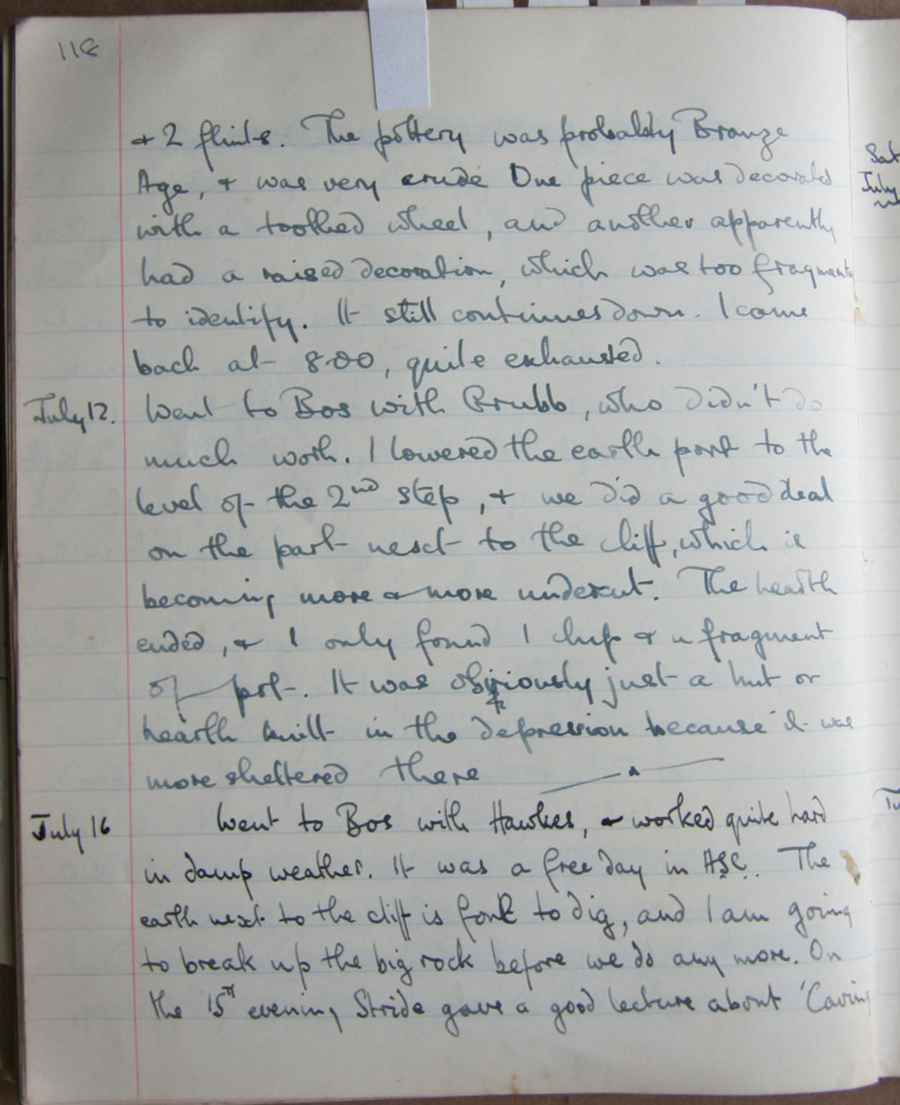 118
+ 2 flints. The pottery was probably Bronze
Age, + was very crude One piece was decorated
with a toothed wheel, and another apparently
had a raised decoration, which was too fragment
to identify. It still continues down. I came
back at 8.00, quite exhausted.
July 12. Went to Bos with Brubb, who didn't do
much work. I lowered the earth part to the
level of the 2nd step, + we did a good deal
on the part next to the cliff, which is
becoming more & more undercut. The hearth
ended, + I only found 1 chip + a fragment
of pot. It was obviously just a hut or
hearth built in the depression because it was
more sheltered there
July 16 Went to Bos with Hawkes, & worked quite hard
in damp weather. It was a free day in ASC. The
earth next to the cliff is to dig, and I am going
to break up the big rock before we do any more. On
the 15th evening Stride gave a good lecture about 'Caving
Sat
July